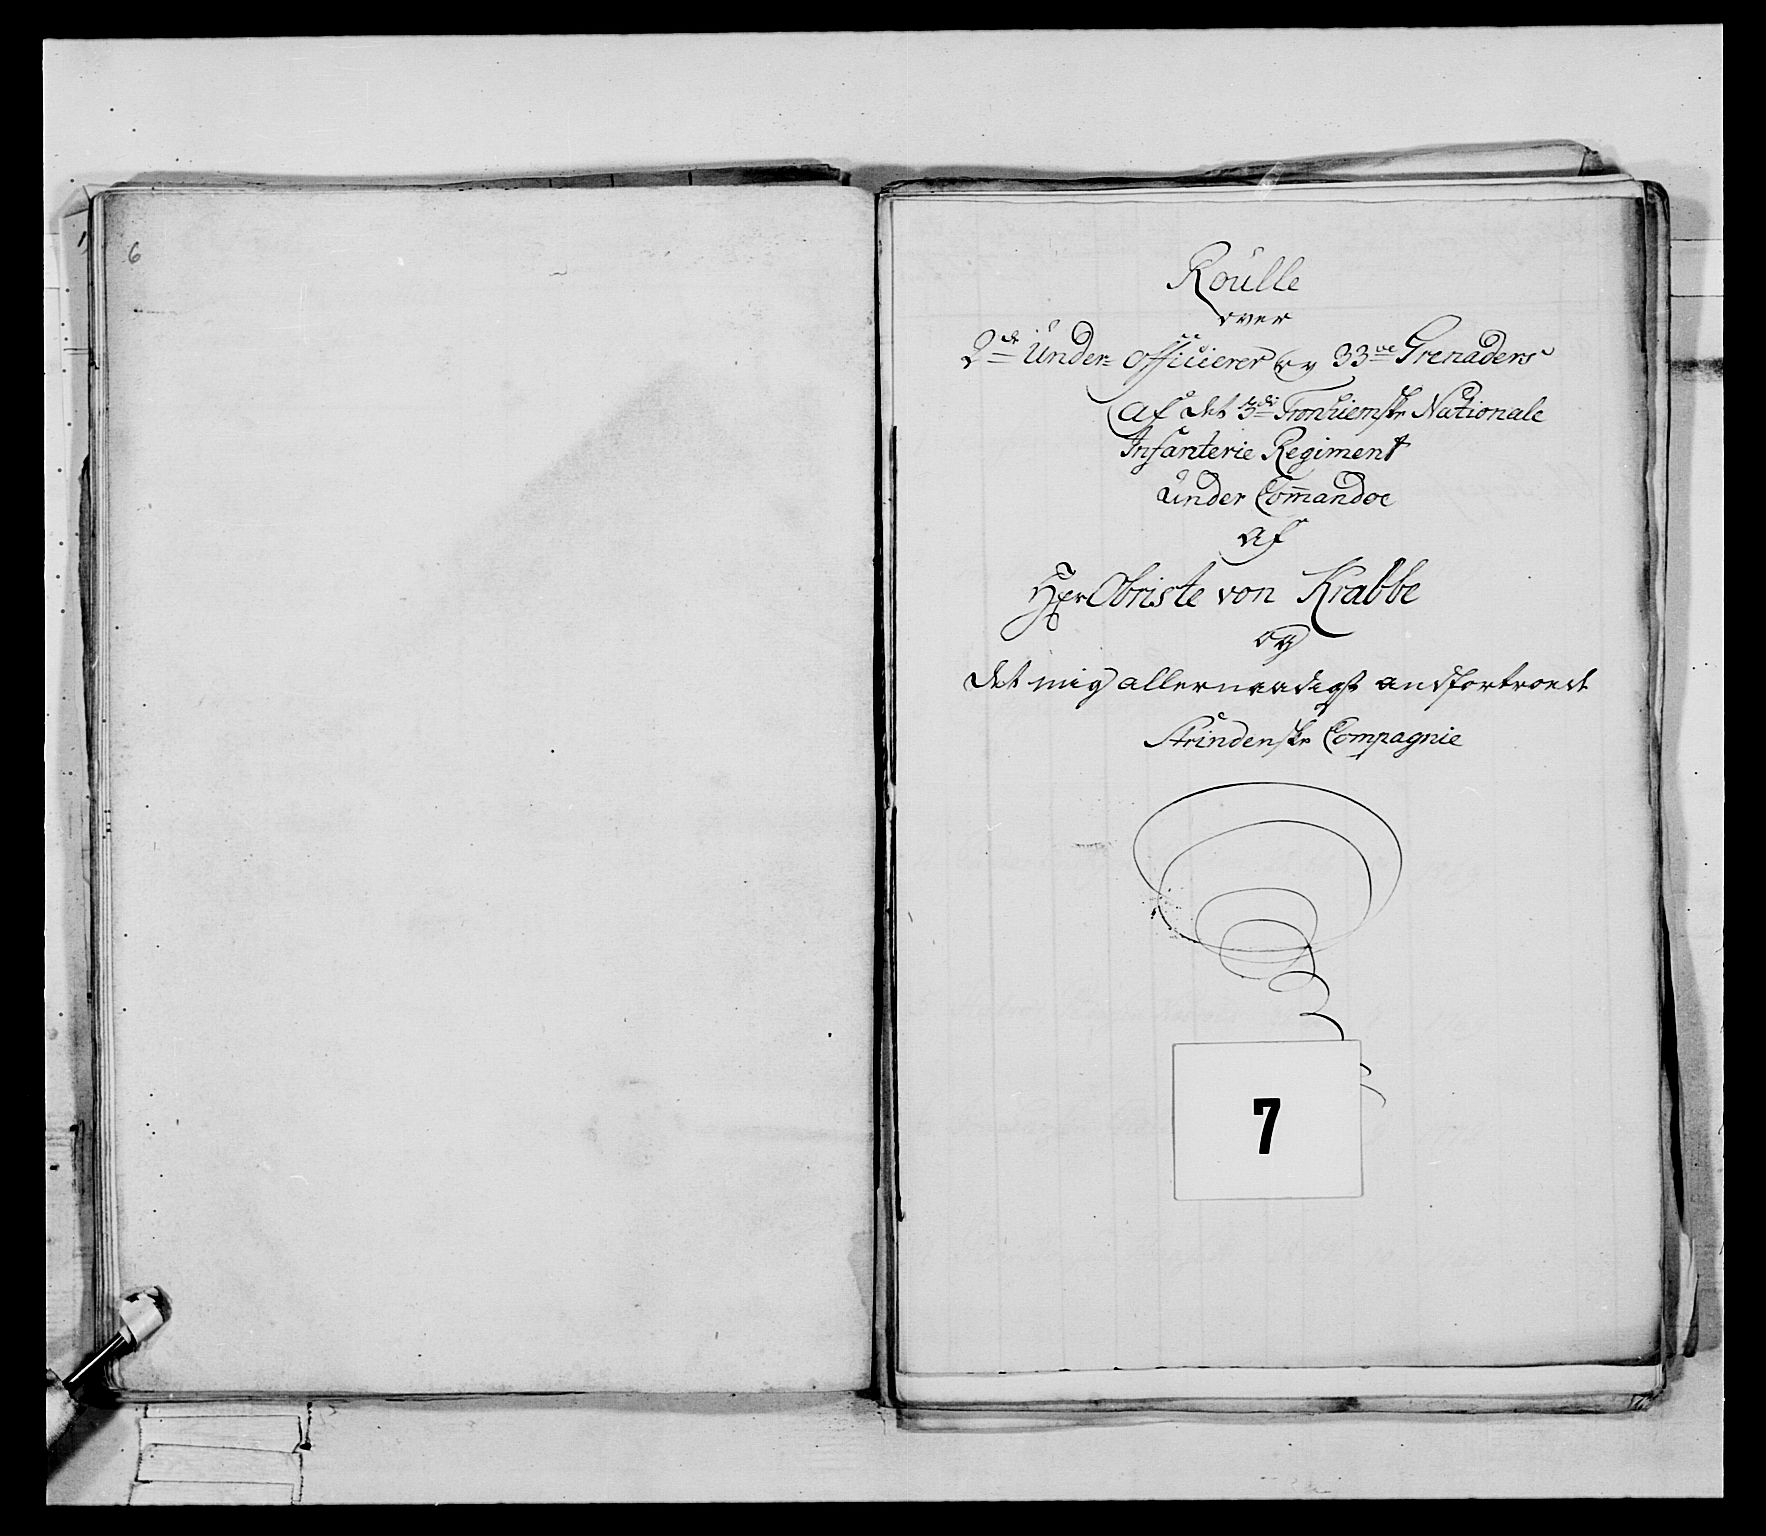 6
Roulle
over
2de Under= Officierer og 33ve Grenaders
af det 3die Tronhiemske Nationale
Infanterie Regiment
under Com̄andoe
af
Hr Obriste von Krabbe
og
det mig allernaadigst andfortroede
Strindenske Compagnie
7